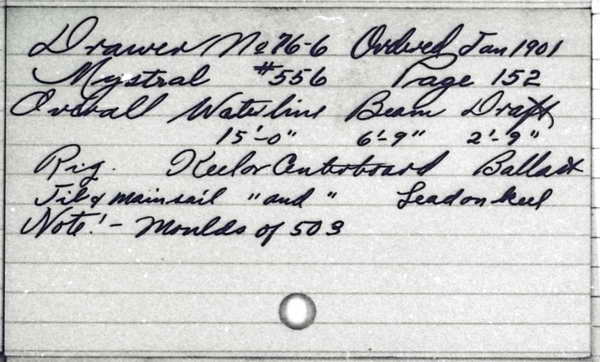 Drawer No 76-6 Ordered Jan 1901
Mystral #556 Page 152
Overall Waterline Beam Draft
15'-0" 6'-9" 2'-9"
Rig. Keel or Centerboard Ballast
Jib & mainsail "and" Lead on keel
Note! - Moulds of 503